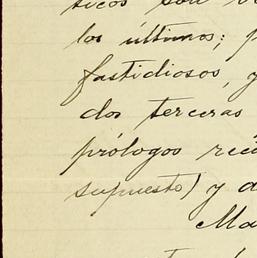 sicos son
los últimos; p
fastidiosos, y
dos terceras
prólogos rec
supuesto) y a
Ma